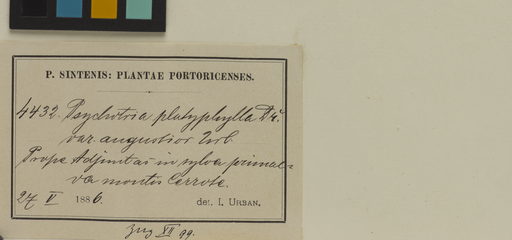 P. SINTENIS: PLANTAE PORTORICENSES.
4432. Psychotria platyphylla DC.
var. angustior Urb.
Prope Adjuntas in sylva primae-
va montis Cerrote.
27 V 1886. det. I. URBAN.
VII 99.